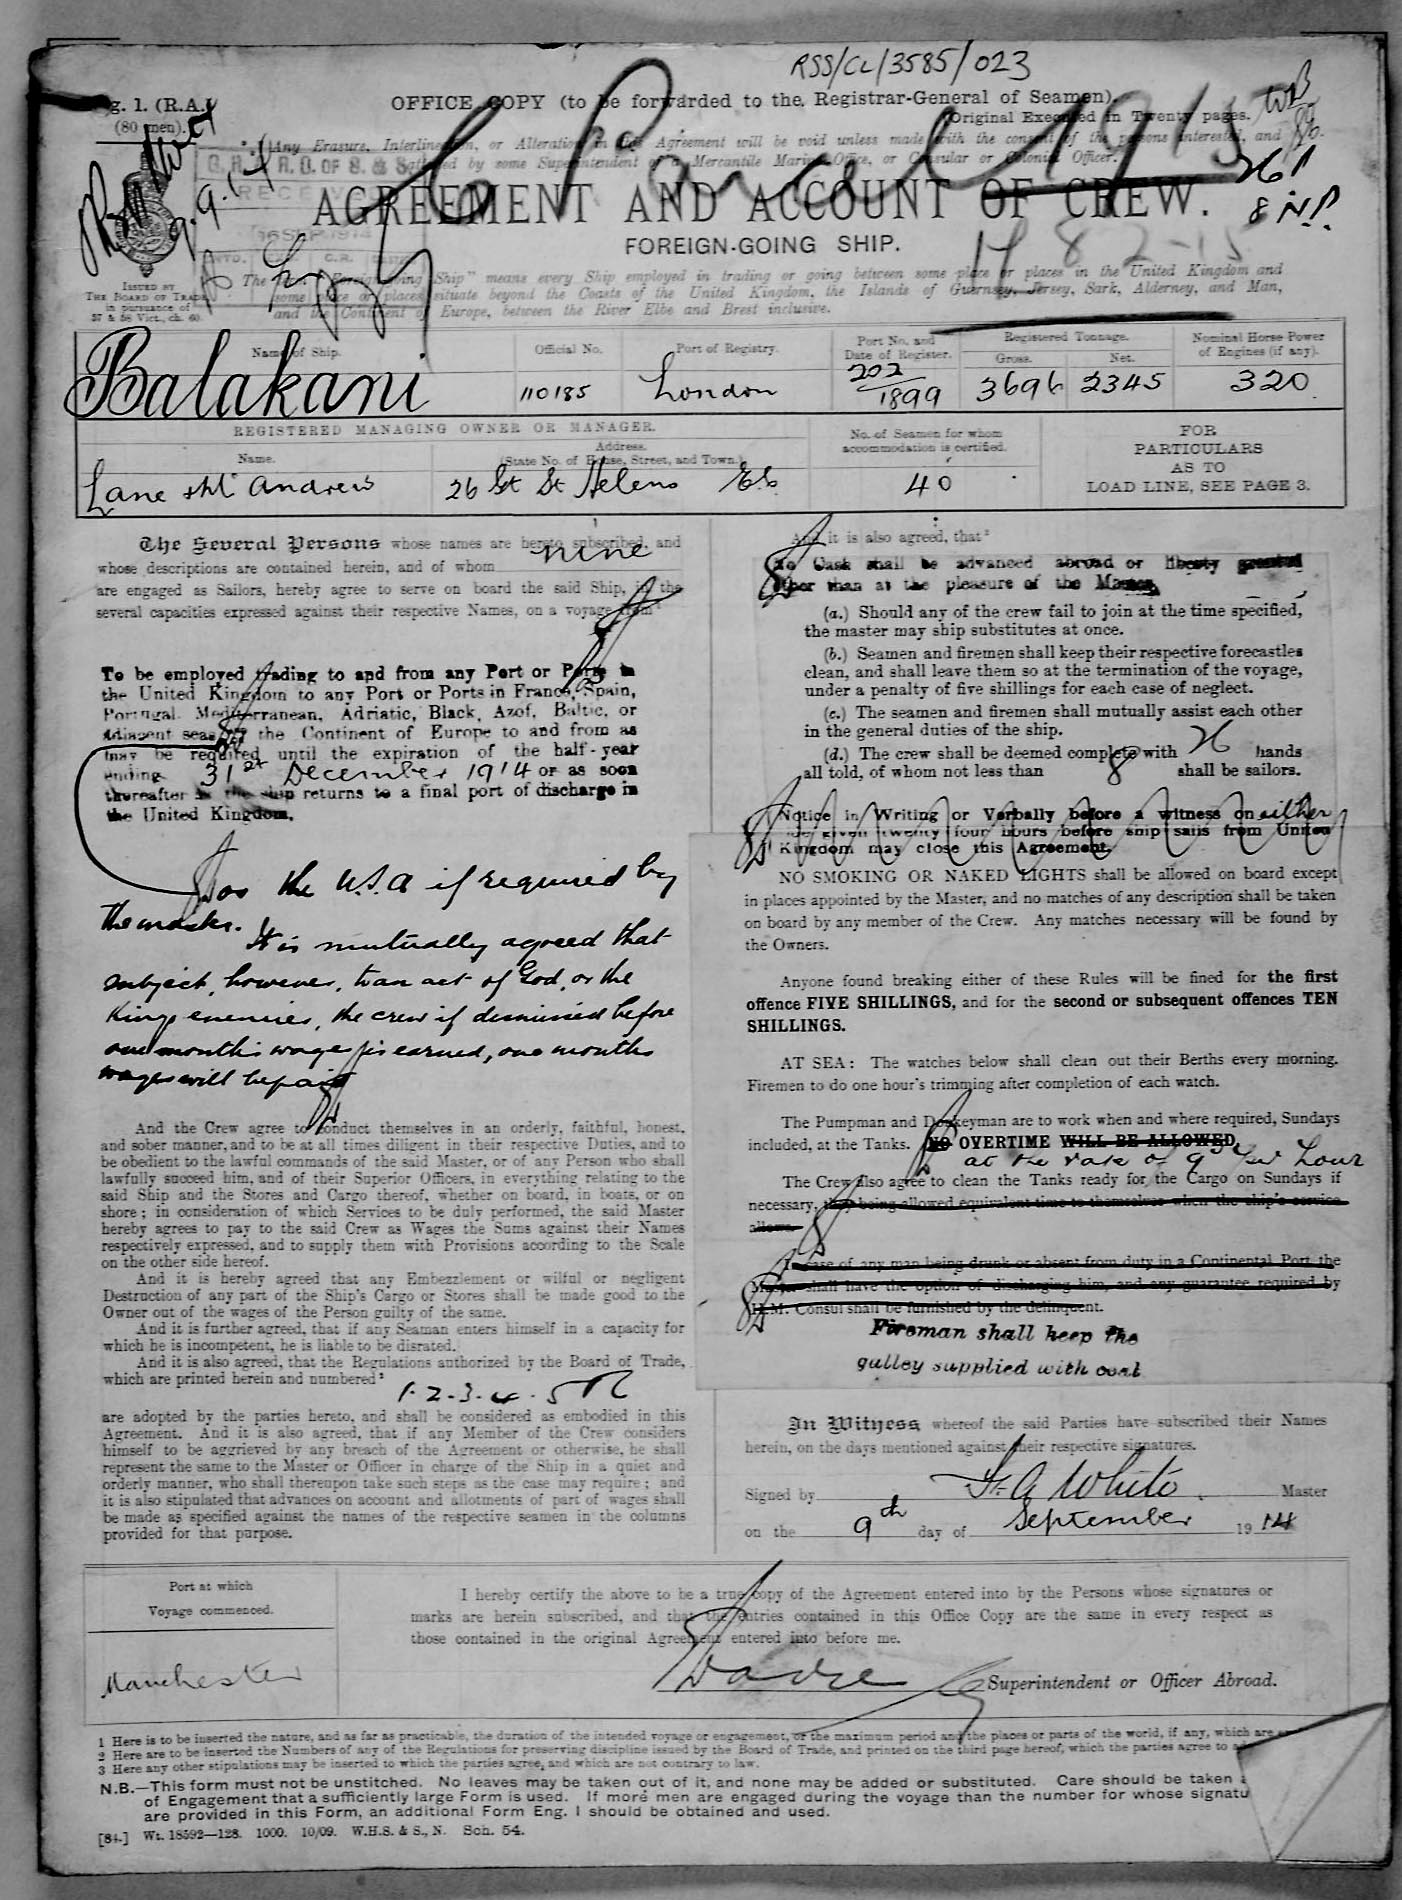 RSS/CL/3585/023
g. 1. (R.A.)
(80 men).
OFFICE COPY (to be forwarded to the Registrar-General of Seamen).
Original Executed in Twenty pages.
Any Erasure, Interlineation, or Alteration in this Agreement will be void unless made with the consent of the persons interested, and
by some Superintendent of a Mercantile Marine Office, or Consular or Colonial Officer.
9.9.14
1915
AGREEMENT AND ACCOUNT OF CREW.
FOREIGN-GOING SHIP.
ISSUED BY
THE BOARD OF TRADE
in pursuance of
57 & 58 Vict., ch. 60.
The term "Foreign-going Ship" means every Ship employed in trading or going between some place or places in the United Kingdom and
some place or places situate beyond the Coasts of the United Kingdom, the Islands of Guernsey, Jersey, Sark, Alderney, and Man,
and the Continent of Europe, between the River Elbe and Brest inclusive.
Name of Ship. Official No. Port of Registry. Port No. and Date of Register. Registered Tonnage. Gross. Net. Nominal Horse Power of Engines (if any).
Balakani 110185 London 202/1899 3696 2345 320
REGISTERED MANAGING OWNER OR MANAGER.
Name. Address. (State No. of House, Street, and Town.) No. of Seamen for whom accommodation is certified.
FOR PARTICULARS AS TO LOAD LINE, SEE PAGE 3.
Lane & McAndrew 26 Gt St Helens E.C. 40
The Several Persons whose names are hereto subscribed, and
whose descriptions are contained herein, and of whom nine
are engaged as Sailors, hereby agree to serve on board the said Ship, in the
several capacities expressed against their respective Names, on a voyage from
To be employed trading to and from any Port or Ports in
the United Kingdom to any Port or Ports in France, Spain,
Portugal, Mediterranean, Adriatic, Black, Azof, Baltic, or
Adjacent seas, the Continent of Europe to and from as
may be required until the expiration of the half-year
ending 31st December 1914 or as soon
thereafter as the ship returns to a final port of discharge in
the United Kingdom.
or the U.S.A if required by
the master.
It is mutually agreed that
subject, however, to an act of God, or the
Kings enemies, the crew if dismissed before
one months wages is earned, one months
wages will be paid
And the Crew agree to conduct themselves in an orderly, faithful, honest,
and sober manner, and to be at all times diligent in their respective Duties, and to
be obedient to the lawful commands of the said Master, or of any Person who shall
lawfully succeed him, and of their Superior Officers, in everything relating to the
said Ship and the Stores and Cargo thereof, whether on board, in boats, or on
shore; in consideration of which Services to be duly performed, the said Master
hereby agrees to pay to the said Crew as Wages the Sums against their Names
respectively expressed, and to supply them with Provisions according to the Scale
on the other side hereof.
And it is hereby agreed that any Embezzlement or wilful or negligent
Destruction of any part of the Ship's Cargo or Stores shall be made good to the
Owner out of the wages of the Person guilty of the same.
And it is further agreed, that if any Seaman enters himself in a capacity for
which he is incompetent, he is liable to be disrated.
And it is also agreed, that the Regulations authorized by the Board of Trade,
which are printed herein and numbered²
1.2.3.4.5
are adopted by the parties hereto, and shall be considered as embodied in this
Agreement. And it is also agreed, that if any Member of the Crew considers
himself to be aggrieved by any breach of the Agreement or otherwise, he shall
represent the same to the Master or Officer in charge of the Ship in a quiet and
orderly manner, who shall thereupon take such steps as the case may require; and
it is also stipulated that advances on account and allotments of part of wages shall
be made as specified against the names of the respective seamen in the columns
provided for that purpose.
And it is also agreed, that³
No Cash shall be advanced abroad or liberty granted
other than at the pleasure of the Master.
(a.) Should any of the crew fail to join at the time specified,
the master may ship substitutes at once.
(b.) Seamen and firemen shall keep their respective forecastles
clean, and shall leave them so at the termination of the voyage,
under a penalty of five shillings for each case of neglect.
(c.) The seamen and firemen shall mutually assist each other
in the general duties of the ship.
(d.) The crew shall be deemed complete with 26 hands
all told, of whom not less than 8 shall be sailors.
Notice in Writing or Verbally before a witness on either
given twenty four hours before ship sails from United
Kingdom may close this Agreement.
NO SMOKING OR NAKED LIGHTS shall be allowed on board except
in places appointed by the Master, and no matches of any description shall be taken
on board by any member of the Crew. Any matches necessary will be found by
the Owners.
Anyone found breaking either of these Rules will be fined for the first
offence FIVE SHILLINGS, and for the second or subsequent offences TEN
SHILLINGS.
AT SEA: The watches below shall clean out their Berths every morning.
Firemen to do one hour's trimming after completion of each watch.
The Pumpman and Donkeyman are to work when and where required, Sundays
included, at the Tanks. NO OVERTIME WILL BE ALLOWED,
at the rate of 9d per hour
The Crew also agree to clean the Tanks ready for the Cargo on Sundays if
necessary, they being allowed equivalent time to themselves when the ship's service
allows.
In case of any man being drunk or absent from duty in a Continental Port the
Master shall have the option of discharging him, and any guarantee required by
H.M. Consul shall be furnished by the delinquent.
Fireman shall keep the
galley supplied with coal
In Witness whereof the said Parties have subscribed their Names
herein, on the days mentioned against their respective signatures.
Signed by F. A White Master
on the 9th day of September 1914
Port at which
Voyage commenced.
Manchester
I hereby certify the above to be a true copy of the Agreement entered into by the Persons whose signatures or
marks are herein subscribed, and that the entries contained in this Office Copy are the same in every respect as
those contained in the original Agreement entered into before me.
Superintendent or Officer Abroad.
1 Here is to be inserted the nature, and as far as practicable, the duration of the intended voyage or engagement, or the maximum period and the places or parts of the world, if any, which are
2 Here are to be inserted the Numbers of any of the Regulations for preserving discipline issued by the Board of Trade, and printed on the third page hereof, which the parties agree to
3 Here any other stipulations may be inserted to which the parties agree, and which are not contrary to law.
N.B.—This form must not be unstitched. No leaves may be taken out of it, and none may be added or substituted. Care should be taken
of Engagement that a sufficiently large Form is used. If more men are engaged during the voyage than the number for whose signatu
are provided in this Form, an additional Form Eng. 1 should be obtained and used.
[84.] Wt. 18592—128. 1000. 10/09. W.H.S. & S., N. Sch. 54.